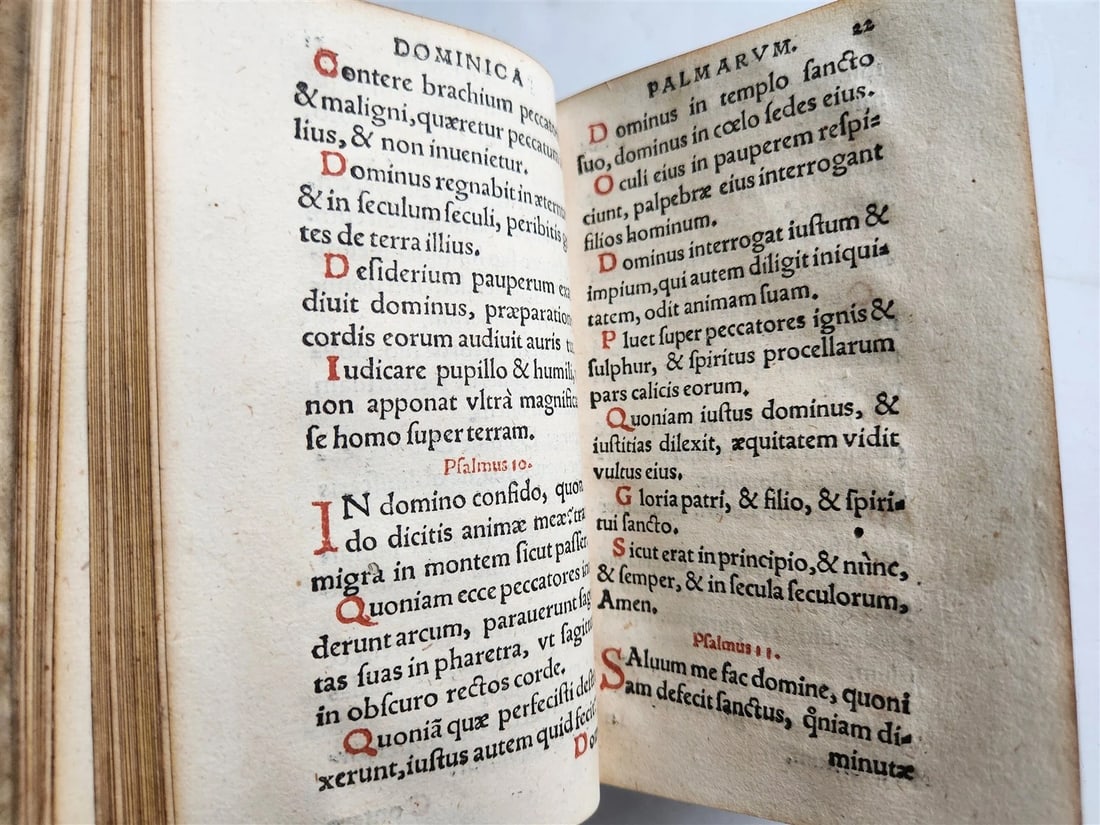 DOMINICA
Contere brachium
& maligni, quæretur
lius, & non inuenietur.
Dominus regnabit in
& in ſeculum ſeculi, peribitis
tes de terra illius.
Deſiderium pauperum
diuit dominus,
cordis eorum audiuit auris
Iudicare pupillo &
non apponat vltrà
ſe homo ſuper terram.
Pſalmus 10.
IN domino confido,
do dicitis animæ
migra in montem ſicut
Quoniam ecce peccatores
derunt arcum, parauerunt
tas ſuas in pharetra, vt
in obſcuro rectos corde.
Quoniã quæ perfeciſti
xerunt, iuſtus autem quid
PALMARVM. 22
Dominus in templo ſancto
ſuo, dominus in cœlo ſedes eius.
Oculi eius in pauperem reſpi⸗
ciunt, palpebræ eius interrogant
filios hominum.
Dominus interrogat iuſtum &
impium, qui autem diligit iniqui⸗
tatem, odit animam ſuam.
Pluet ſuper peccatores ignis &
ſulphur, & ſpiritus procellarum
pars calicis eorum.
Quoniam iuſtus dominus, &
iuſtitias dilexit, æquitatem vidit
vultus eius.
Gloria patri, & filio, & ſpiri⸗
tui ſancto.
Sicut erat in principio, & nũnc,
& ſemper, & in ſecula ſeculorum,
Amen.
Pſalmus 11.
SAluum me fac domine, quoni
am defecit ſanctus, q̃niam di⸗
minutæ